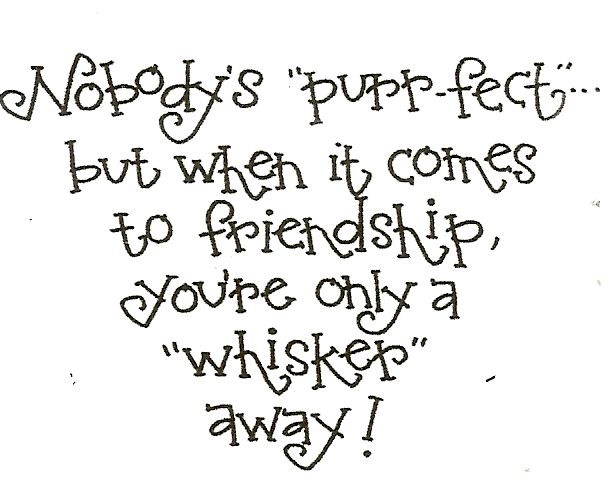 Nobody's "purr-fect"...
but when it comes
to friendship,
you're only a
"whisker"
away!